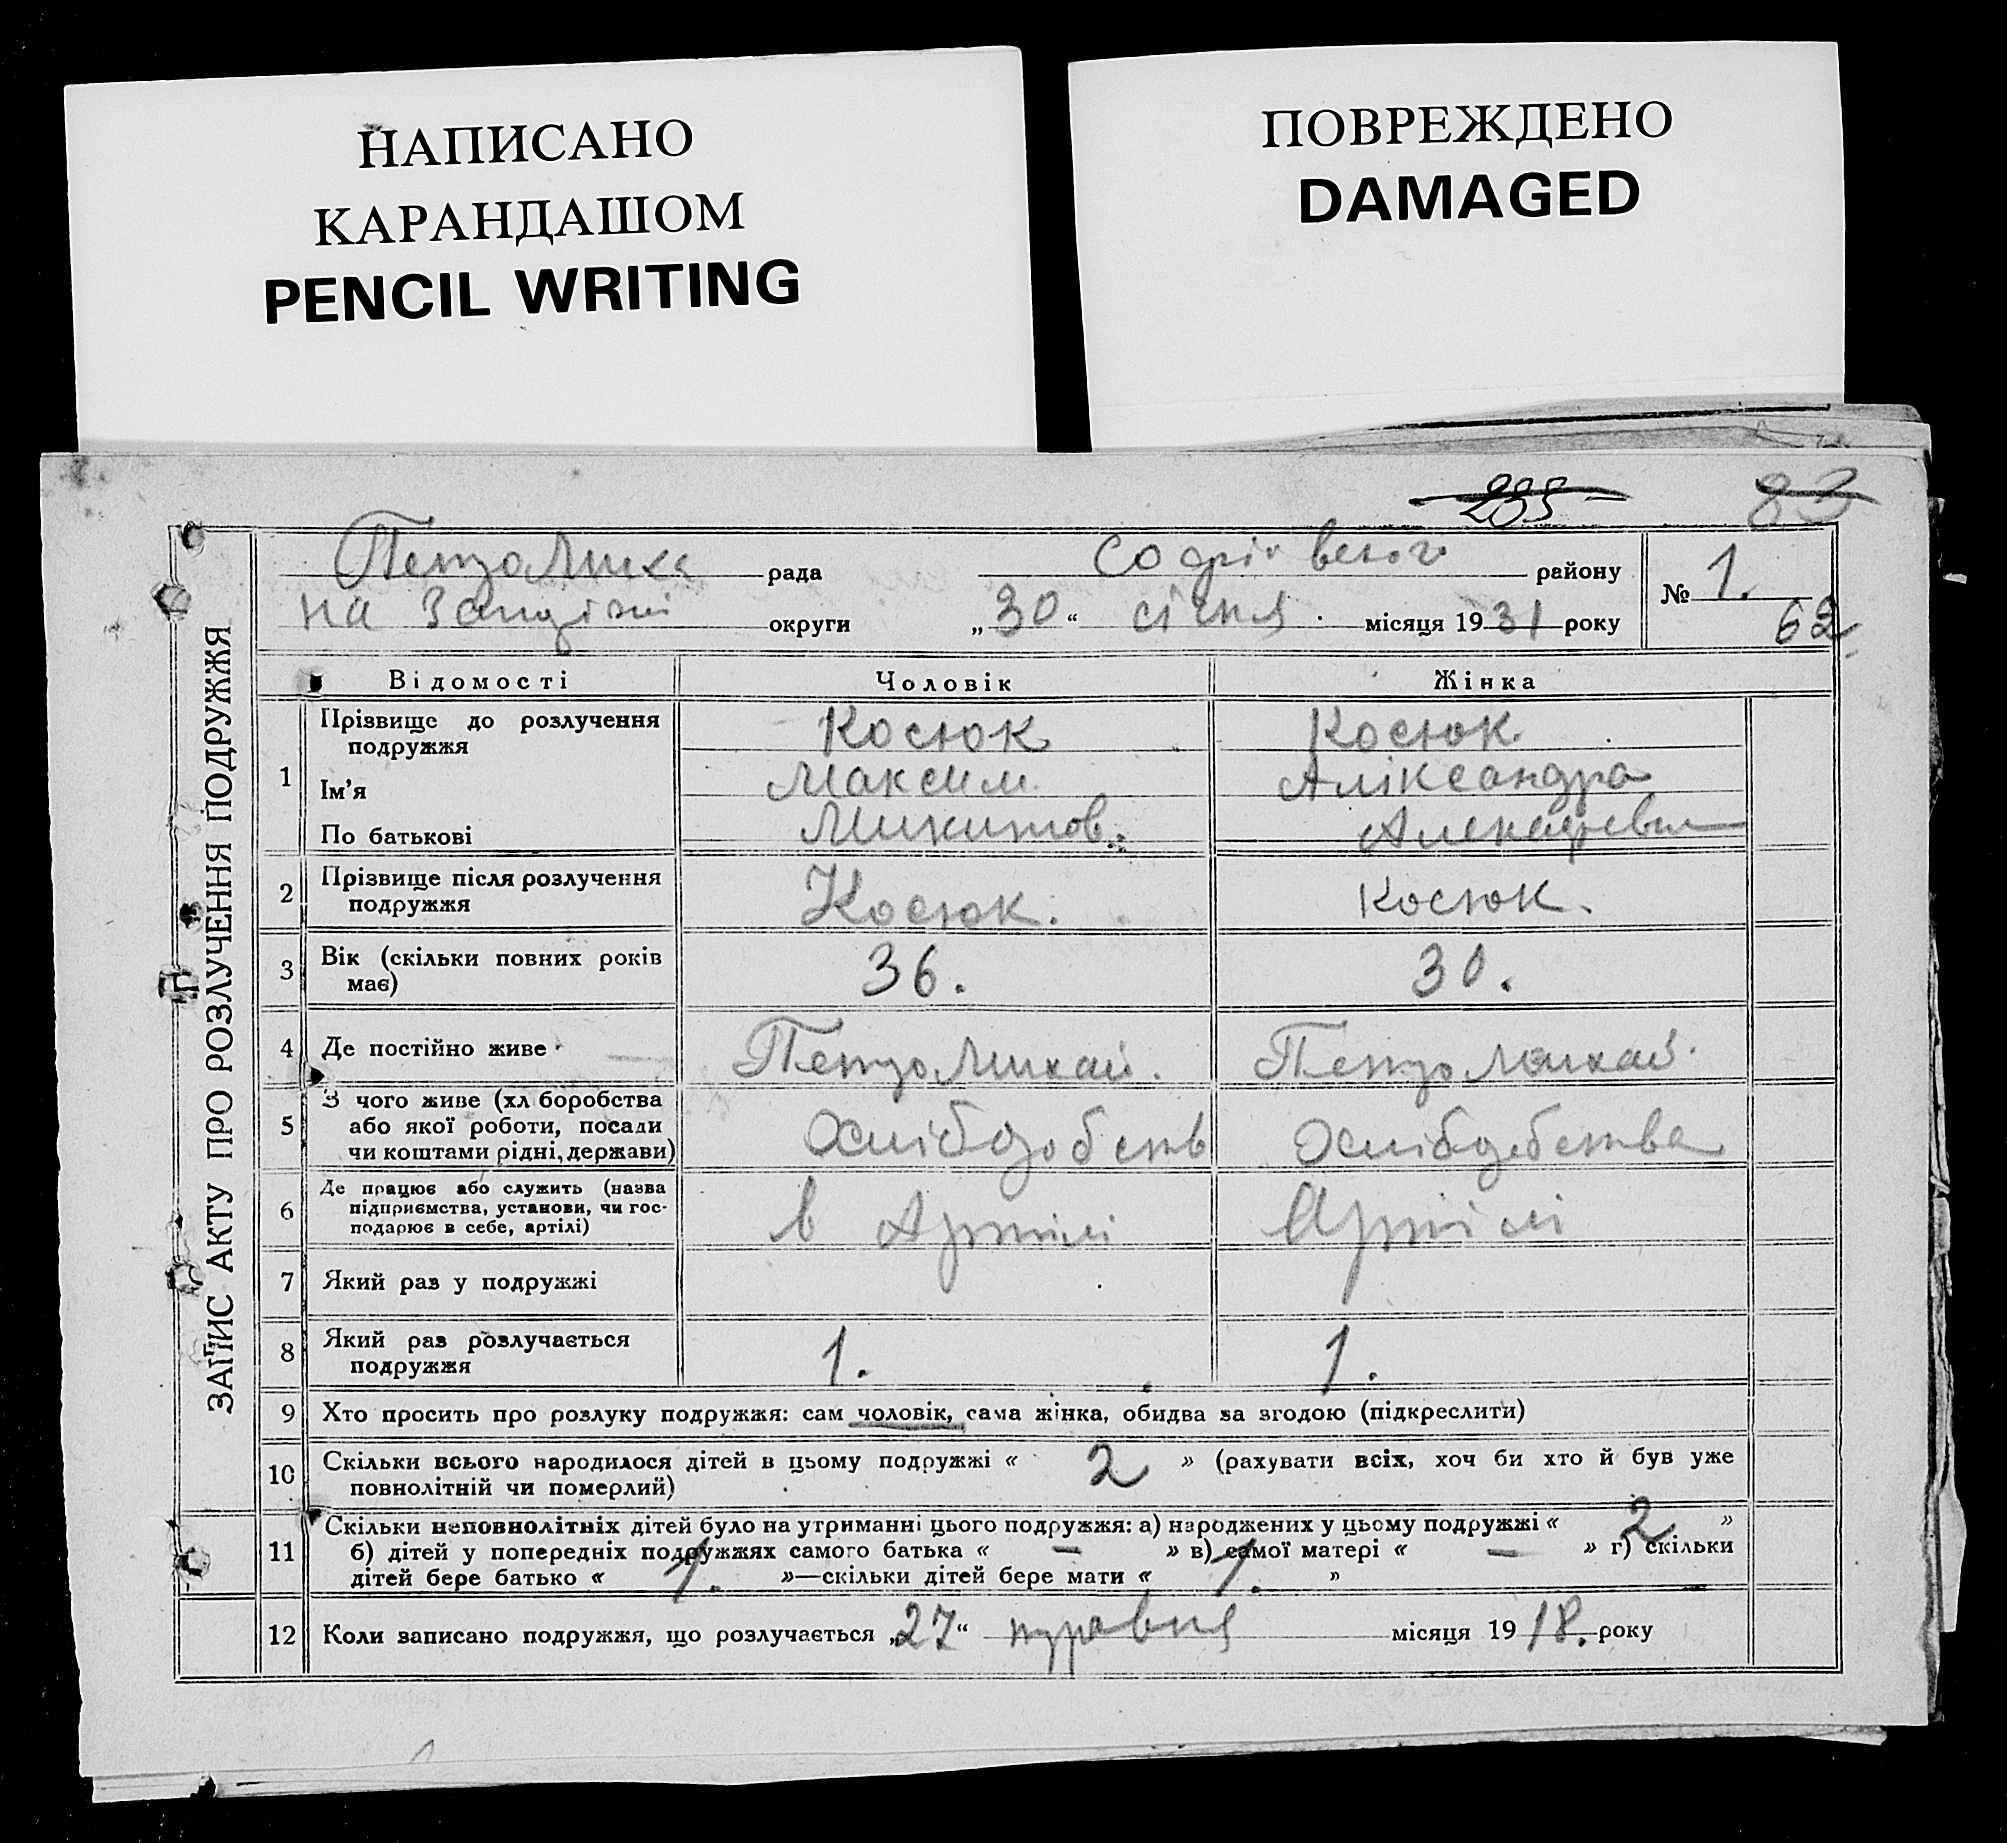 НАПИСАНО
КАРАНДАШОМ
PENCIL WRITING
ПОВРЕЖДЕНО
DAMAGED
235 83
ЗАПИС АКТУ ПРО РОЗЛУЧЕННЯ ПОДРУЖЖЯ
рада Софіївського району № 1.
на Запоріжі округи „30“ січня місяця 1931 року 62
Відомості Чоловік Жінка
1 Прізвище до розлучення подружжя Косюк Косюк
Ім'я Максим Аліксандра
По батькові Микитов
2 Прізвище після розлучення подружжя Косюк. Косюк.
3 Вік (скільки повних років має) 36. 30.
4 Де постійно живе
5 З чого живе (хліборобства або якої роботи, посади чи коштами рідні, держави)
6 Де працює або служить (назва підприємства, установи, чи господарює в себе, артілі) в Артілі Артілі
7 Який раз у подружжі
8 Який раз розлучається подружжя 1. 1.
9 Хто просить про розлуку подружжя: сам чоловік, сама жінка, обидва за згодою (підкреслити)
10 Скільки всього народилося дітей в цьому подружжі « 2 » (рахувати всіх, хоч би хто й був уже
повнолітній чи померлий)
11 Скільки неповнолітніх дітей було на утриманні цього подружжя: а) народжених у цьому подружжі « 2 »
б) дітей у попередніх подружжях самого батька « — » в) самої матері « — » г) скільки
дітей бере батько « 1. »—скільки дітей бере мати « 1. »
12 Коли записано подружжя, що розлучається „27“ травня місяця 1918. року